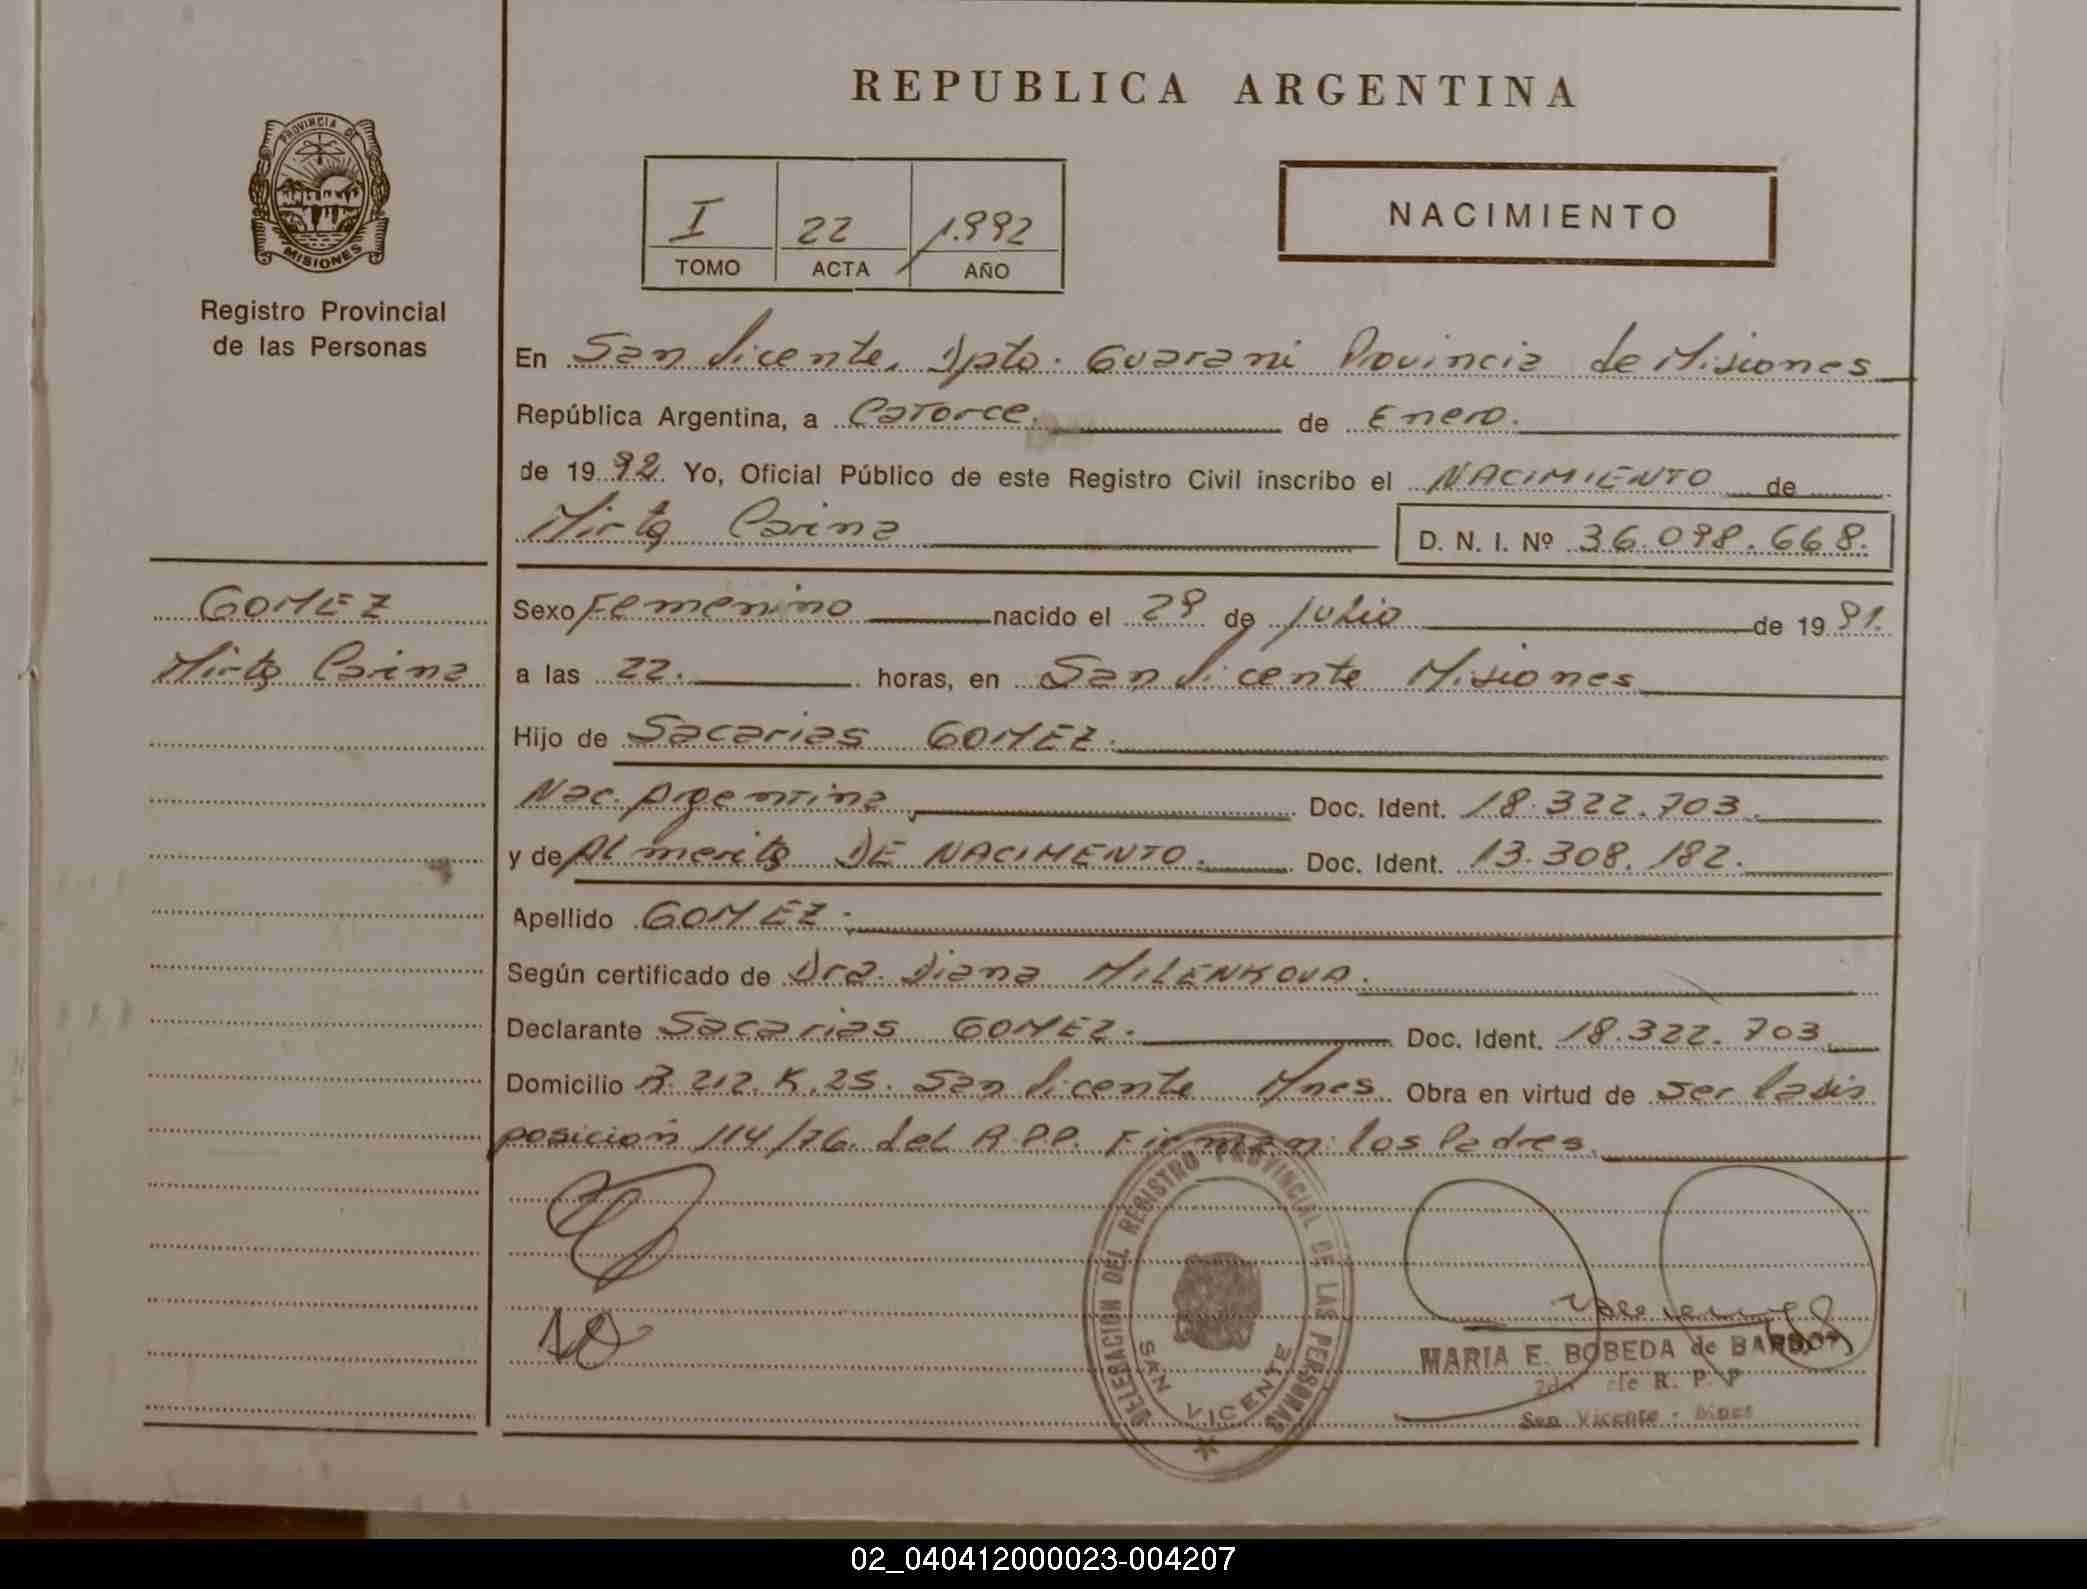 REPUBLICA ARGENTINA
PROVINCIA DE
MISIONES
Registro Provincial
de las Personas
I 22 1.992
TOMO ACTA AÑO
NACIMIENTO
En San Vicente, Dpto. Guarani Provincia de Misiones
República Argentina, a Catorce. de Enero.
de 19 92. Yo, Oficial Público de este Registro Civil inscribo el NACIMIENTO de
Mirta Carina
D. N. I. Nº 36.098.668.
GOMEZ
Mirta Carina
Sexo Femenino nacido el 29 de Julio de 19 91.
a las 22. horas, en San Vicente Misiones
Hijo de Sacarias GOMEZ.
Nac. Argentina Doc. Ident. 18.322.703.
y de Almerita DE NACIMENTO. Doc. Ident. 13.308.182.
Apellido GOMEZ.
Según certificado de Dra. Diana MILENKOVA.
Declarante Sacarias GOMEZ. Doc. Ident. 18.322.703
Domicilio R. 212. K. 25. San Vicente Mnes. Obra en virtud de ser la dis
posición 114/76. del R.P.P. Firman: los Padres.
DELEGACION DEL REGISTRO PROVINCIAL DE LAS PERSONAS
SAN VICENTE
MARIA E. BOBEDA de BARBOT
de R. P. P
San Vicente - Mnes
02_040412000023-004207